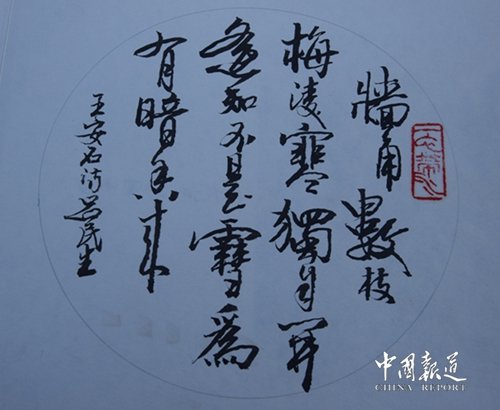 牆角數枝
梅凌寒獨自開
遙知不是雪爲
有暗香來
王安石诗吕民生
中國報道
CHINA REPORT